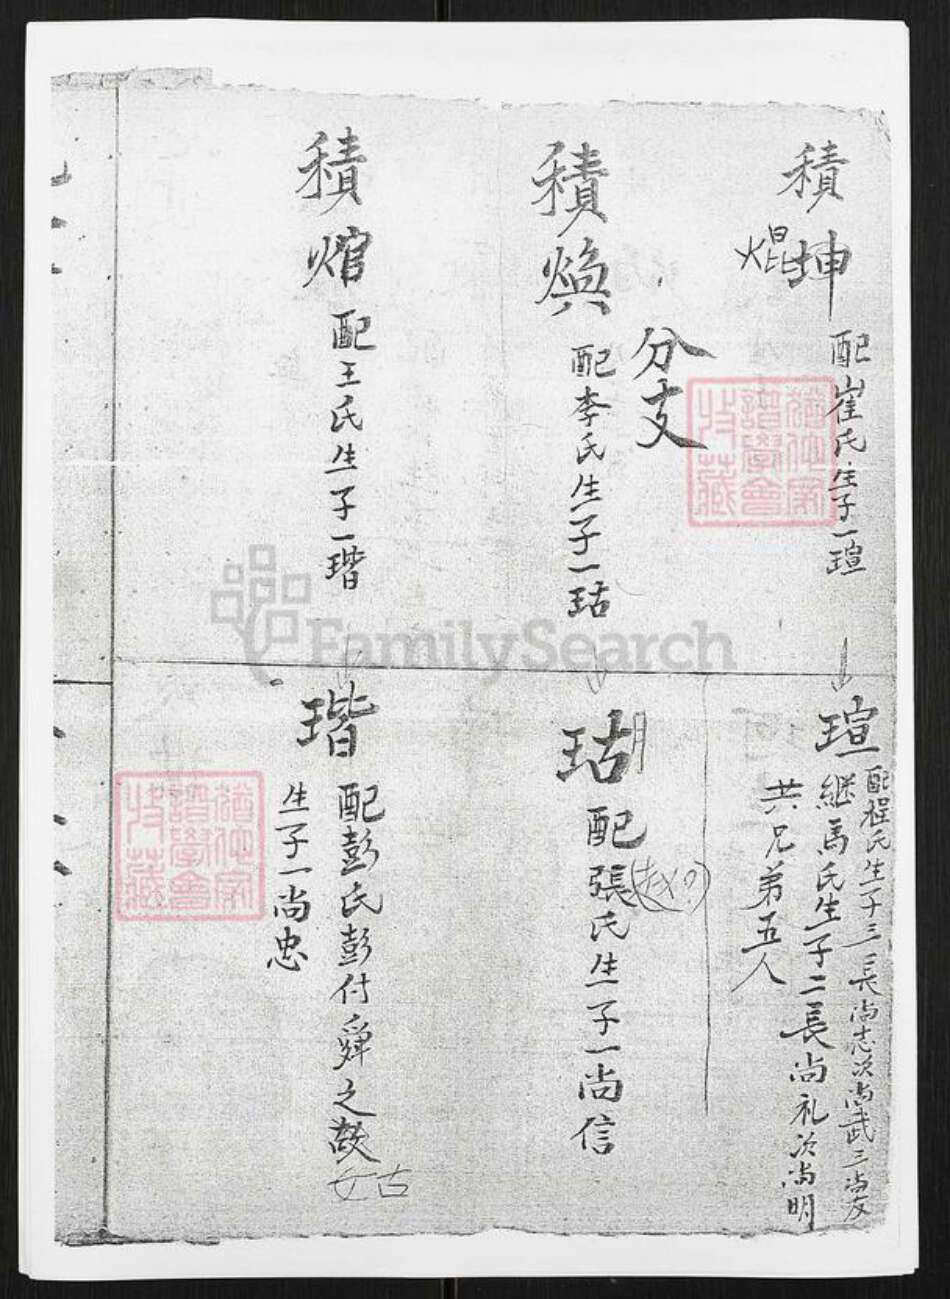 積坤
焜
配崔氏生子一瑄
分支
積煥
配李氏生子一祜
積焰
配王氏生子一瑎
瑄
配程氏生子三長尚志次尚武三尚友
継馬氏生子二長尚礼次尚明
共兄弟五人
瑚
配張氏生子一尚信
(赵?)
瑎
配彭氏彭付舜之
女古
生子一尚忠
猶他家譜學會收藏
猶他家譜學會收藏
FamilySearch